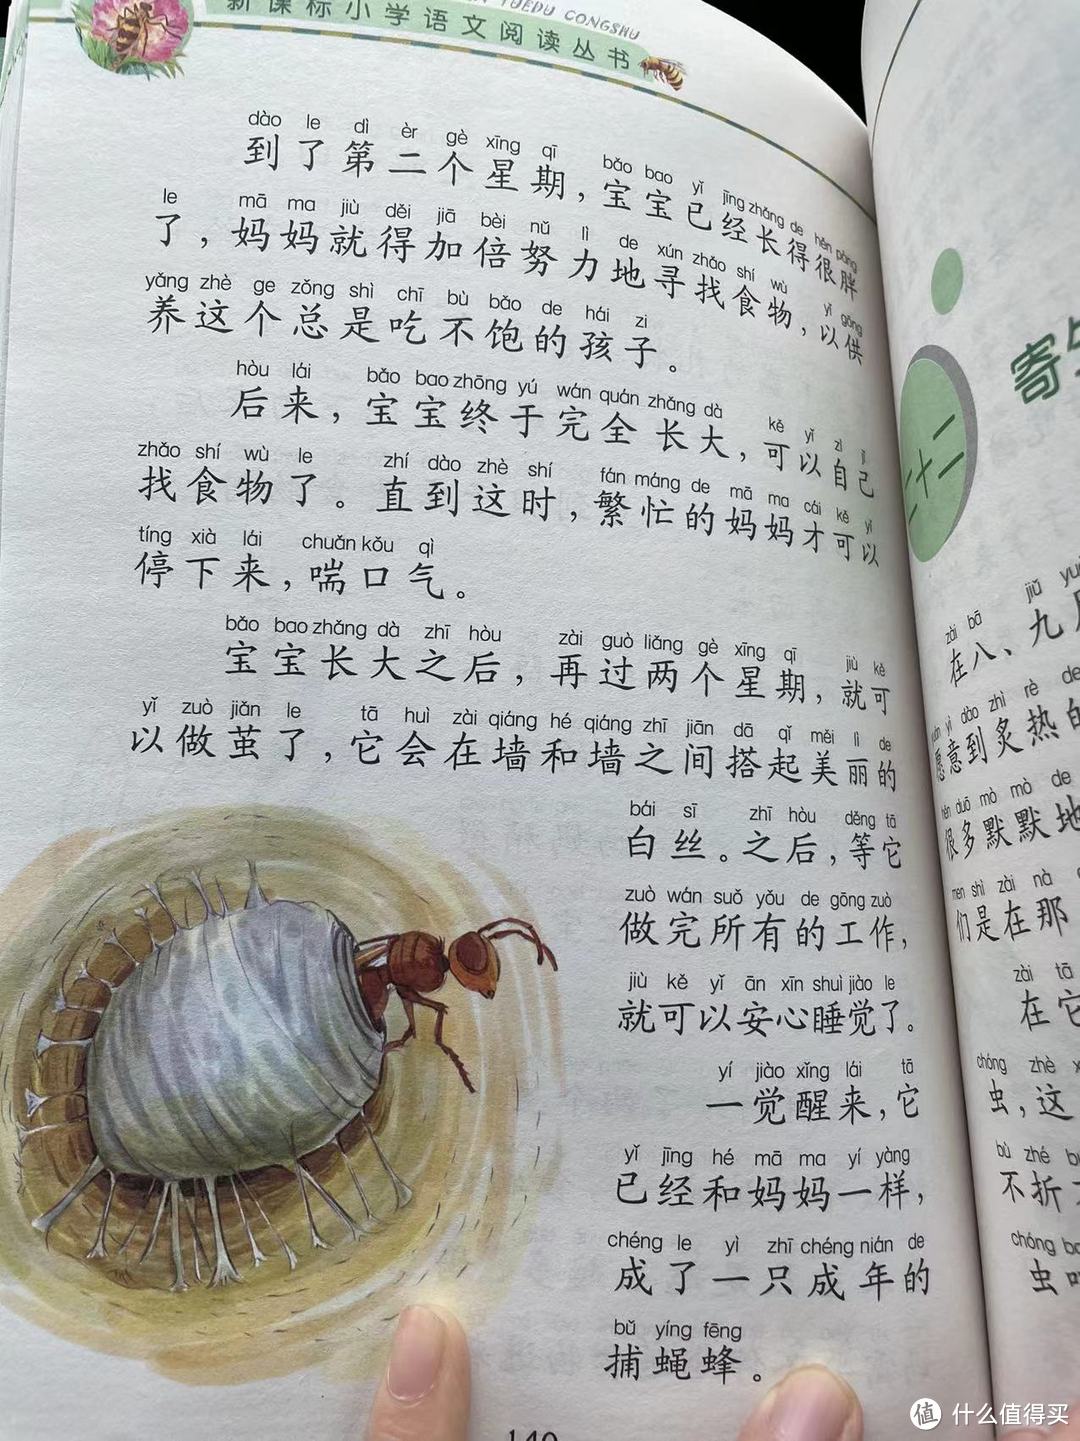 新课标小学语文阅读丛书
YUEDU CONGSHU
dào le dì èr gè xīng qī bǎo bao yǐ jīng zhǎng de hěn pàng
到了第二个星期，宝宝已经长得很胖
le mā ma jiù děi jiā bèi nǔ lì de xún zhǎo shí wù yǐ gōng
了，妈妈就得加倍努力地寻找食物，以供
yǎng zhè ge zǒng shì chī bù bǎo de hái zi
养这个总是吃不饱的孩子。
hòu lái bǎo bao zhōng yú wán quán zhǎng dà kě yǐ zì jǐ
后来，宝宝终于完全长大，可以自己
zhǎo shí wù le zhí dào zhè shí fán máng de mā ma cái kě yǐ
找食物了。直到这时，繁忙的妈妈才可以
tíng xià lái chuǎn kǒu qì
停下来，喘口气。
bǎo bao zhǎng dà zhī hòu zài guò liǎng gè xīng qī jiù kě
宝宝长大之后，再过两个星期，就可
yǐ zuò jiǎn le tā huì zài qiáng hé qiáng zhī jiān dā qǐ měi lì de
以做茧了，它会在墙和墙之间搭起美丽的
bái sī zhī hòu děng tā
白丝。之后，等它
zuò wán suǒ yǒu de gōng zuò
做完所有的工作，
jiù kě yǐ ān xīn shuì jiào le
就可以安心睡觉了。
yí jiào xǐng lái tā
一觉醒来，它
yǐ jīng hé mā ma yí yàng
已经和妈妈一样，
chéng le yì zhī chéng nián de
成了一只成年的
bǔ yíng fēng
捕蝇蜂。
140
二十二
寄
zài bā jiǔ yu
在八、九月
yì dào zhì rè de
愿意到炙热的
hěn duō mò mò de
很多默默地
men shì zài nà
们是在那
zài tā
在它
chóng zhè
虫，这
bù zhé
不折
chóng
虫
值 什么值得买